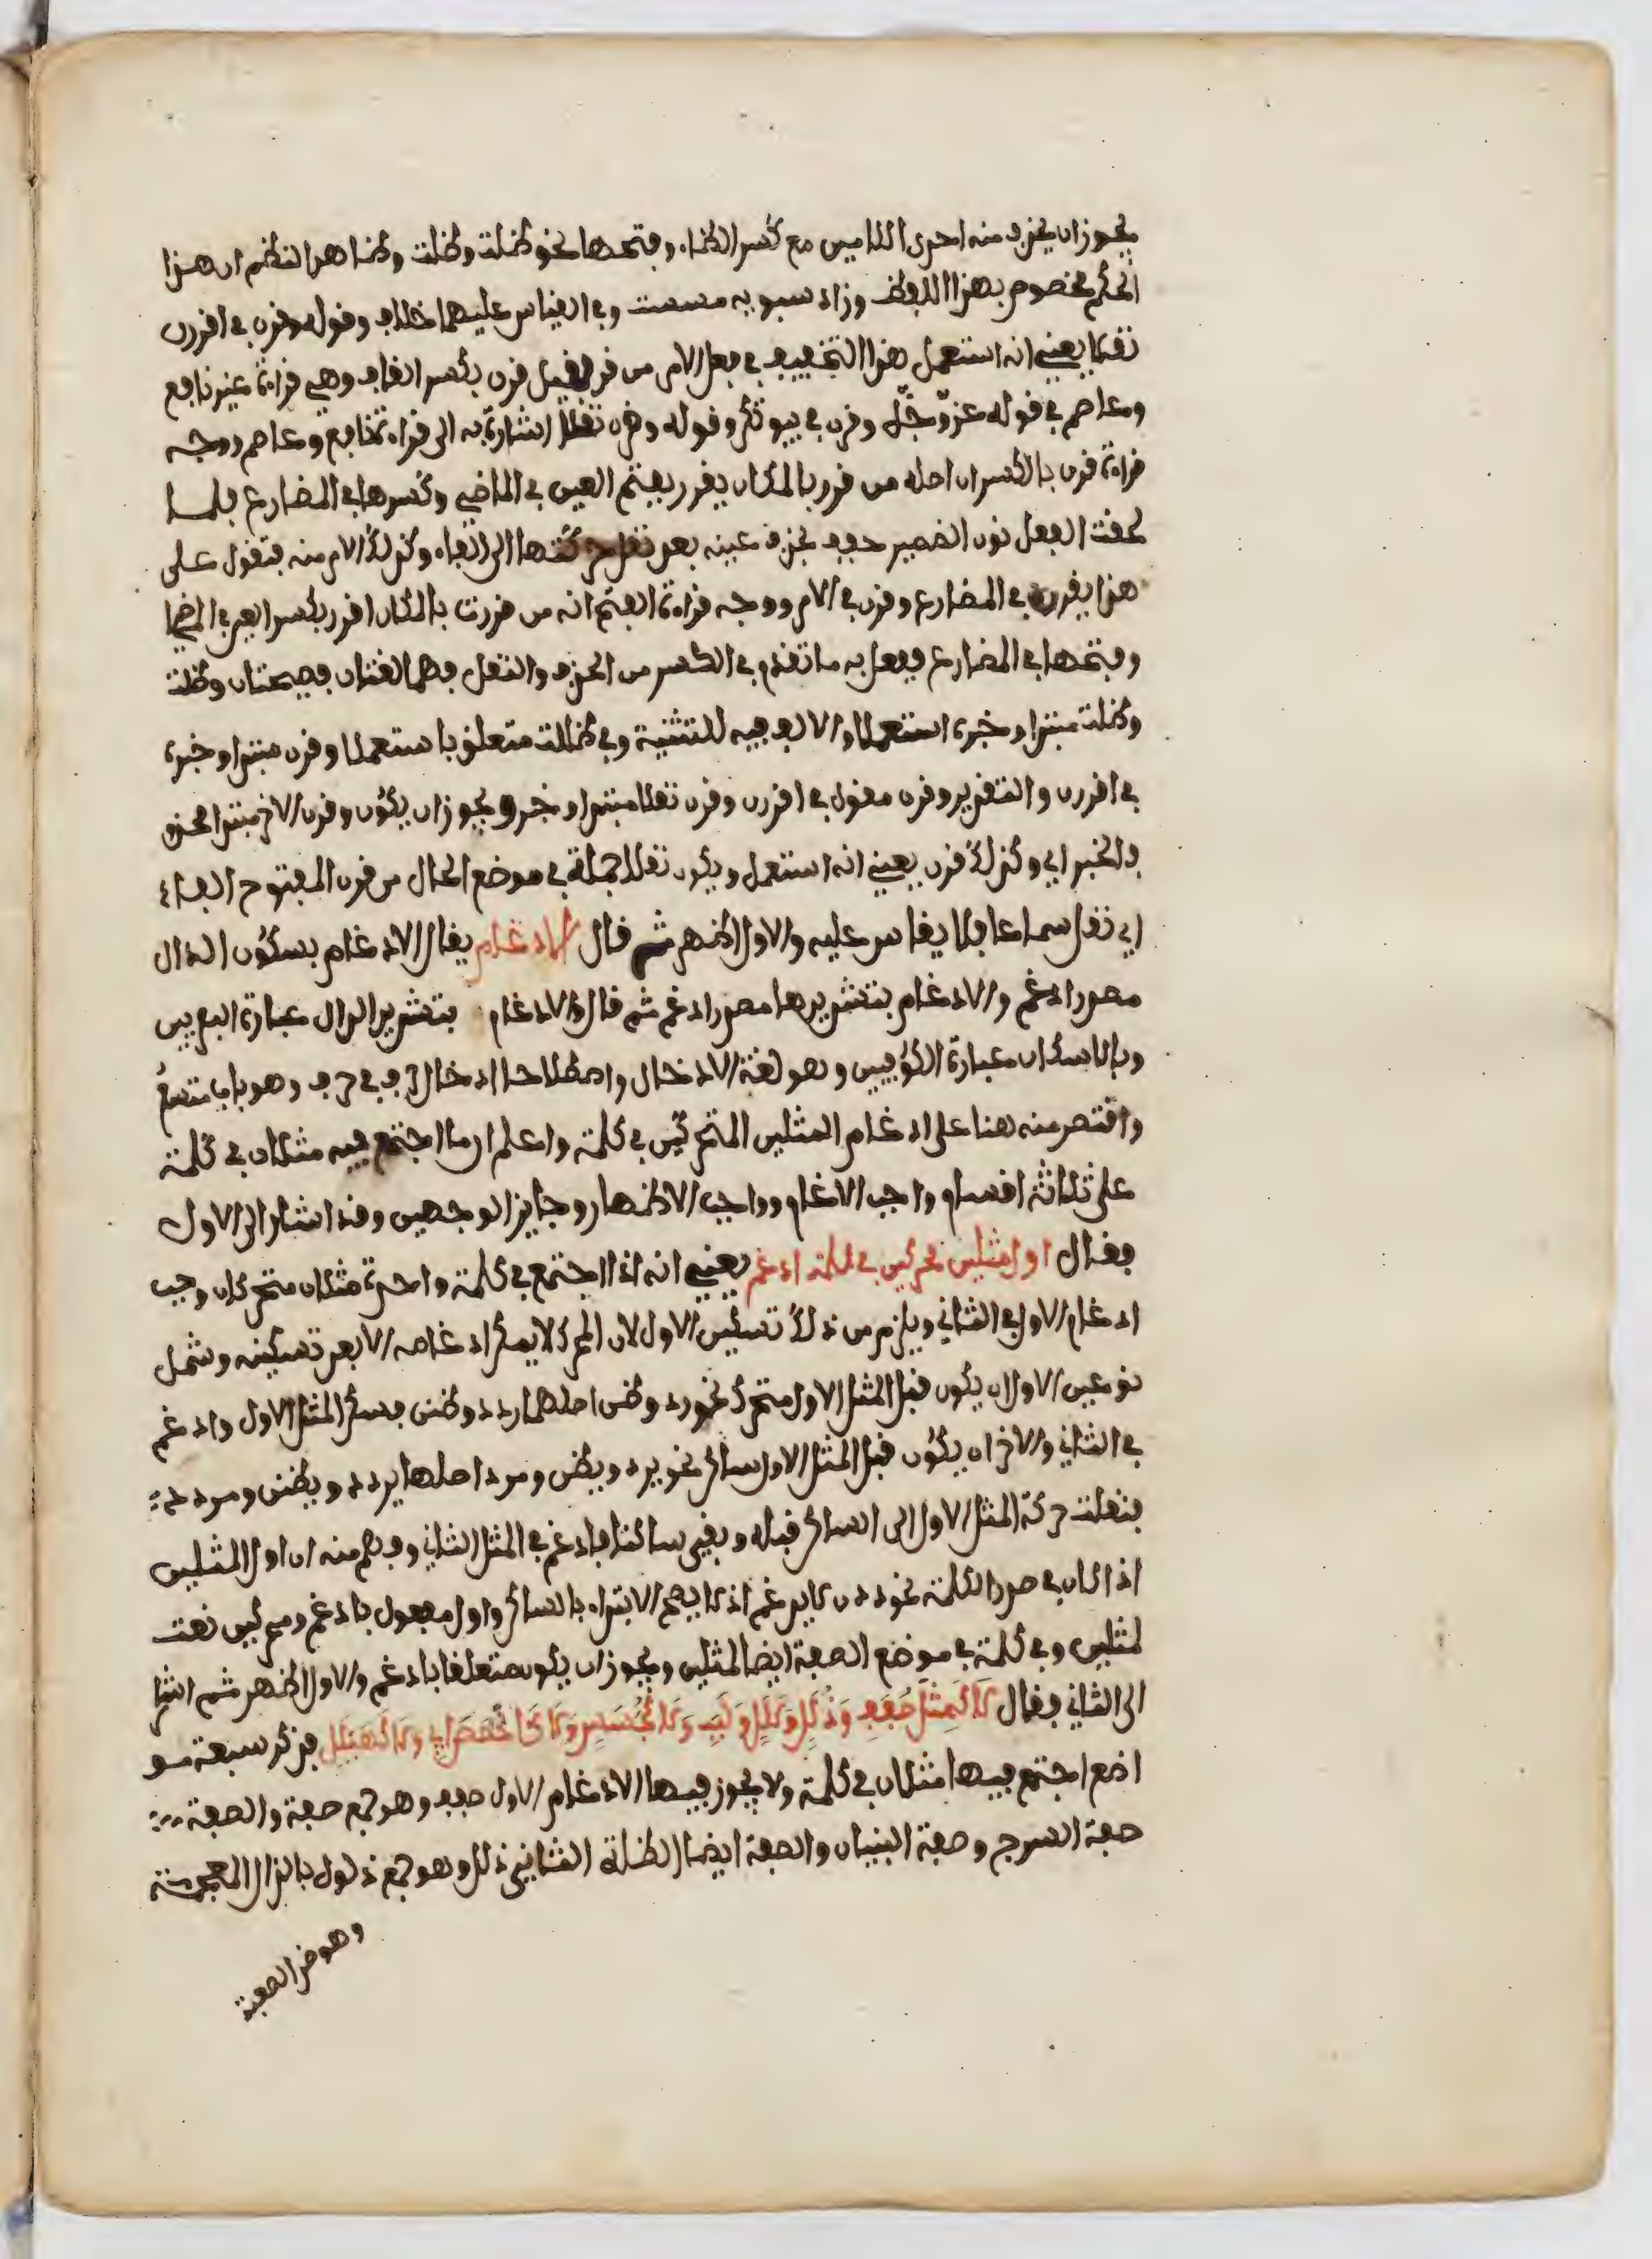 يجوز ان يحذف منه احدى اللامين مع كسر الظاء وفتحها نحو ظلت وظلت وظاهر النظم ان هذا
الحكم مخصوص بهذا اللفظ وزاد سيبويه مست وفي القياس عليهما خلاف وقوله وقرن في اقررن
نقلا يعني انه استعمل هذا التخفيف في فعل الامر من قر فقيل قرن بكسر القاف وهي قراءة غير نافع
وعاصم في قوله عز وجل وقرن في بيوتكن وقوله وقرن نقلا اشارة به الى قراءة نافع وعاصم ووجه
قراءة قرن بالكسر ان اصله من قرر بالمكان يقرر بفتح العين في الماضي وكسرها في المضارع فلما
لحقت الفعل نون الضمير خفف بحذف عينه بعد نقل حركتها الى القاء وكذلك الامر منه فتقول على
هذا يقرن في المضارع وقرن في الامر ووجه قراءة الفتح انه من قررت بالمكان اقرر بكسر العين في الماضي
وفتحها في المضارع ففعل به ما تقدم في الكسر من الحذف والنقل فهما لغتان فصيحتان وظلت
وظلت مبتدا وخبره استعملا والالف فيه للتثنية وفي ظللت متعلق باستعملا وقرن مبتدا وخبره
في اقررن والتقدير وقرن مقول في اقررن وقرن نقلا مبتدا وخبر ويجوز ان يكون وقرن الاخر مبتدا محذو
ف الخبر اي وكذلك قرن يعني انه استعمل ويكون نقلا جملة في موضع الحال من قرن المفتوح الفاء
اي نقل سماعا فلا يقاس عليه والاول اظهر ثم قال الادغام يقال الادغام بسكون الدال
مصدر ادغم والادغام بتشديرها مصدر ادغم ثم قال والادغام بتشديد الدال عبارة البصريين
وبالاسكان عبارة الكوفيين وهو لغة الادخال واصطلاحا ادخال حرف في حرف وهو باب متسع
واقتصر منه هنا على ادغام المثلين المتحركين في كلمة واعلم ان ما اجتمع فيه مثلان في كلمة
على ثلاثة اقسام واجب الادغام وواجب الاظهار وجايز الوجهين وقد اشار الى الاول
فقال اول مثلين محركين في كلمة ادغم يعني انه اذا اجتمع في كلمة واحدة مثلان متحركان وجب
ادغام الاول في الثاني ويلزم من ذلك تسكين الاول لان المحرك لا يمكن ادغامه الا بعد تسكينه وشمل
نوعين الاول ان يكون قبل المثل الاول متحرك نحو رد وظن اصلهما ردد وظنن فسكن المثل الاول وادغم
في الثاني والاخر ان يكون قبل المثل الاول ساكن نحو يرد ويظن ومرد اصلها يردد ويظنن ومردد
فنقلت حركة المثل الاول الى الساكن قبله وبقي ساكنا فادغم في المثل الثاني وفهم منه ان اول المثلين
اذا كان في صدر الكلمة نحو ددن لا يدغم اذ لا يصح الابتداء بالساكن واول مفعول بادغم ومحركين نعت
لمثلين وفي كلمة في موضع الصفة ايضا لمثلين ويجوز ان يكون متعلقا بادغم والاول اظهر ثم اشار
الى الثاني فقال لا كمثل صفف وذلل وكلل ولبب ولا كجسس ولا كاخصص ابي ولا كهيلل فذكر سبعة موا
اضع اجتمع فيها مثلان في كلمة ولا يجوز فيها الادغام الاول صفف وهو جمع صفة والصفة
صفة السرج وصفة البنيان والصفة ايضا الظلة الثاني ذلل وهو جمع ذلول بالذال المعجمة
وهو ضد الصعبة